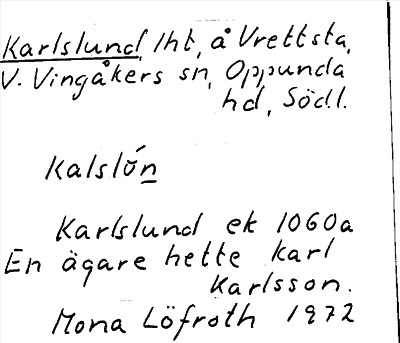 Karlslund, lht, å Vrettsta,
V. Vingåkers sn, Oppunda
hd, Södl.
Kalslón
Karlslund ek 1060a
En ägare hette Karl
Karlsson.
Mona Löfroth 1972